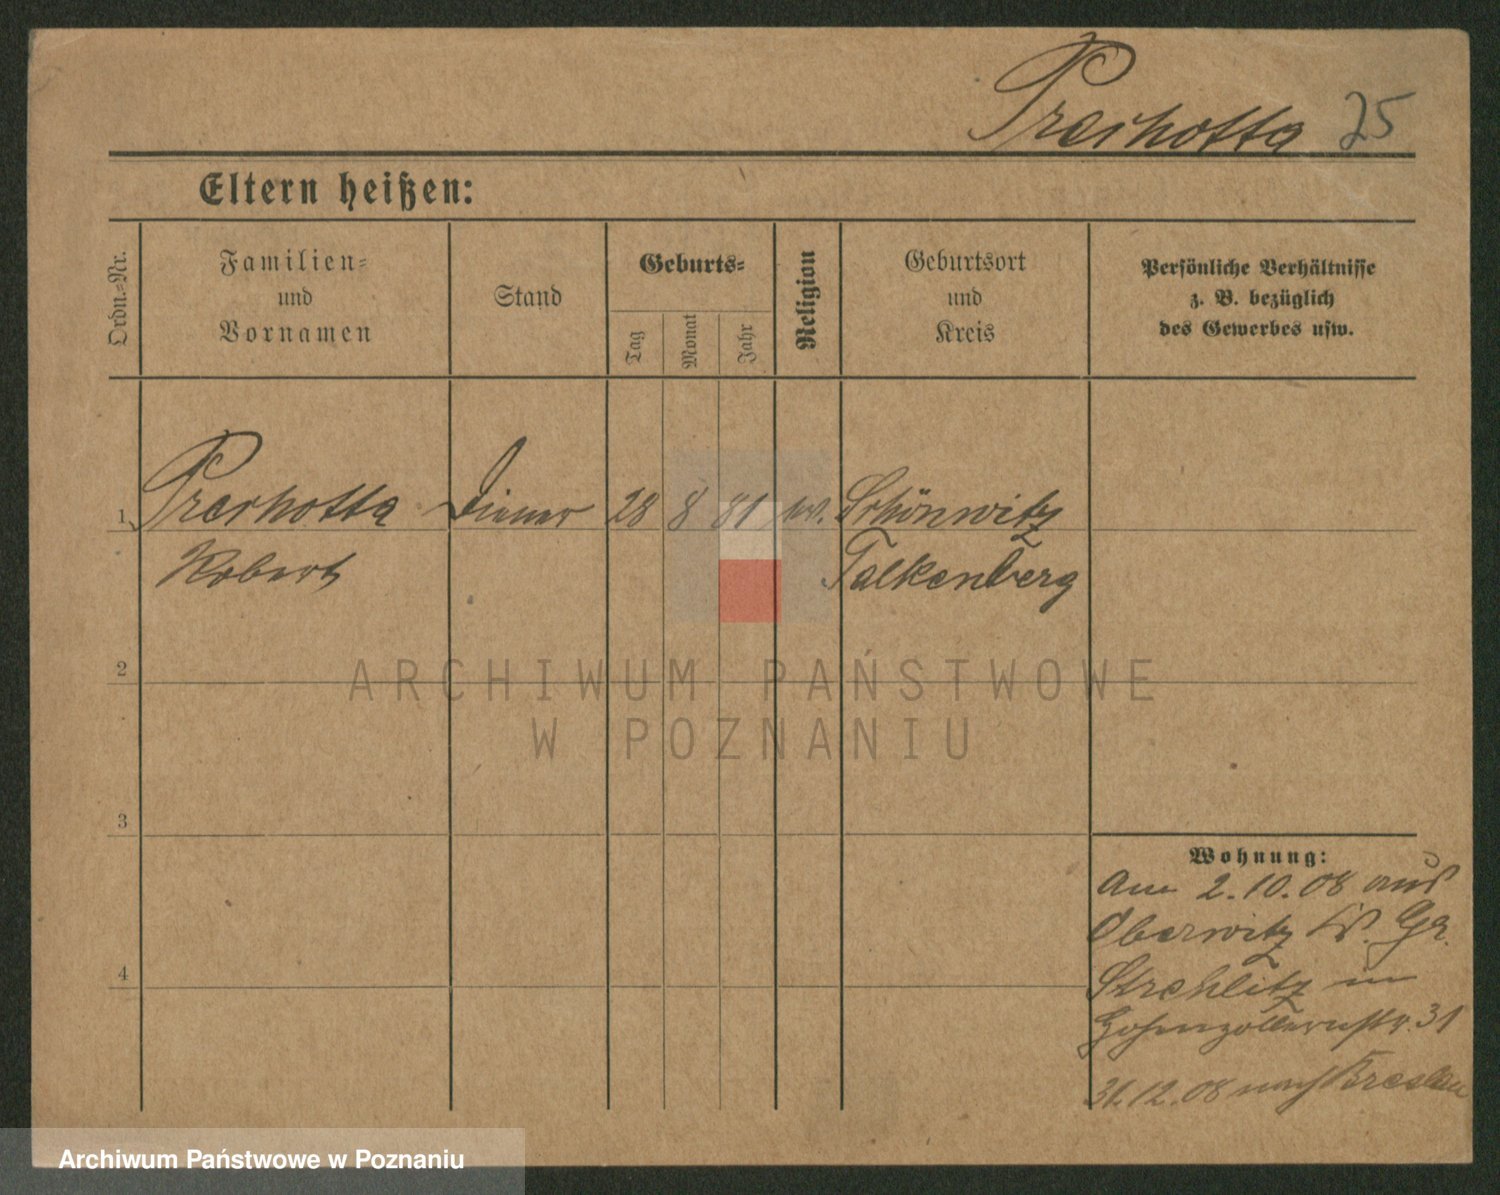 Prerhotta 25
Eltern heißen:
Ordn.-Nr.
Familien-
und
Vornamen
Stand
Geburts-
Tag
Monat
Jahr
Religion
Geburtsort
und
Kreis
Persönliche Verhältnisse
z. B. bezüglich
des Gewerbes usw.
1 Prerhotta Diener 28 8 81 Schönwitz
Robert Falkenberg
2
3
4
Wohnung:
Am 2.10.08 aus
Oberwitz Gr.
Strehlitz in
Hohenzollernstr. 31
31.12.08 nach Breslau
ARCHIWUM PAŃSTWOWE
W POZNANIU
Archiwum Państwowe w Poznaniu